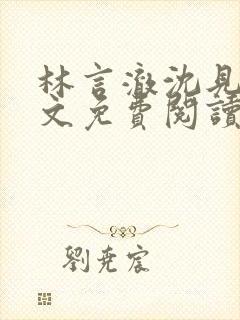 林言澈沈見
文免費閱讀
劉堯宸